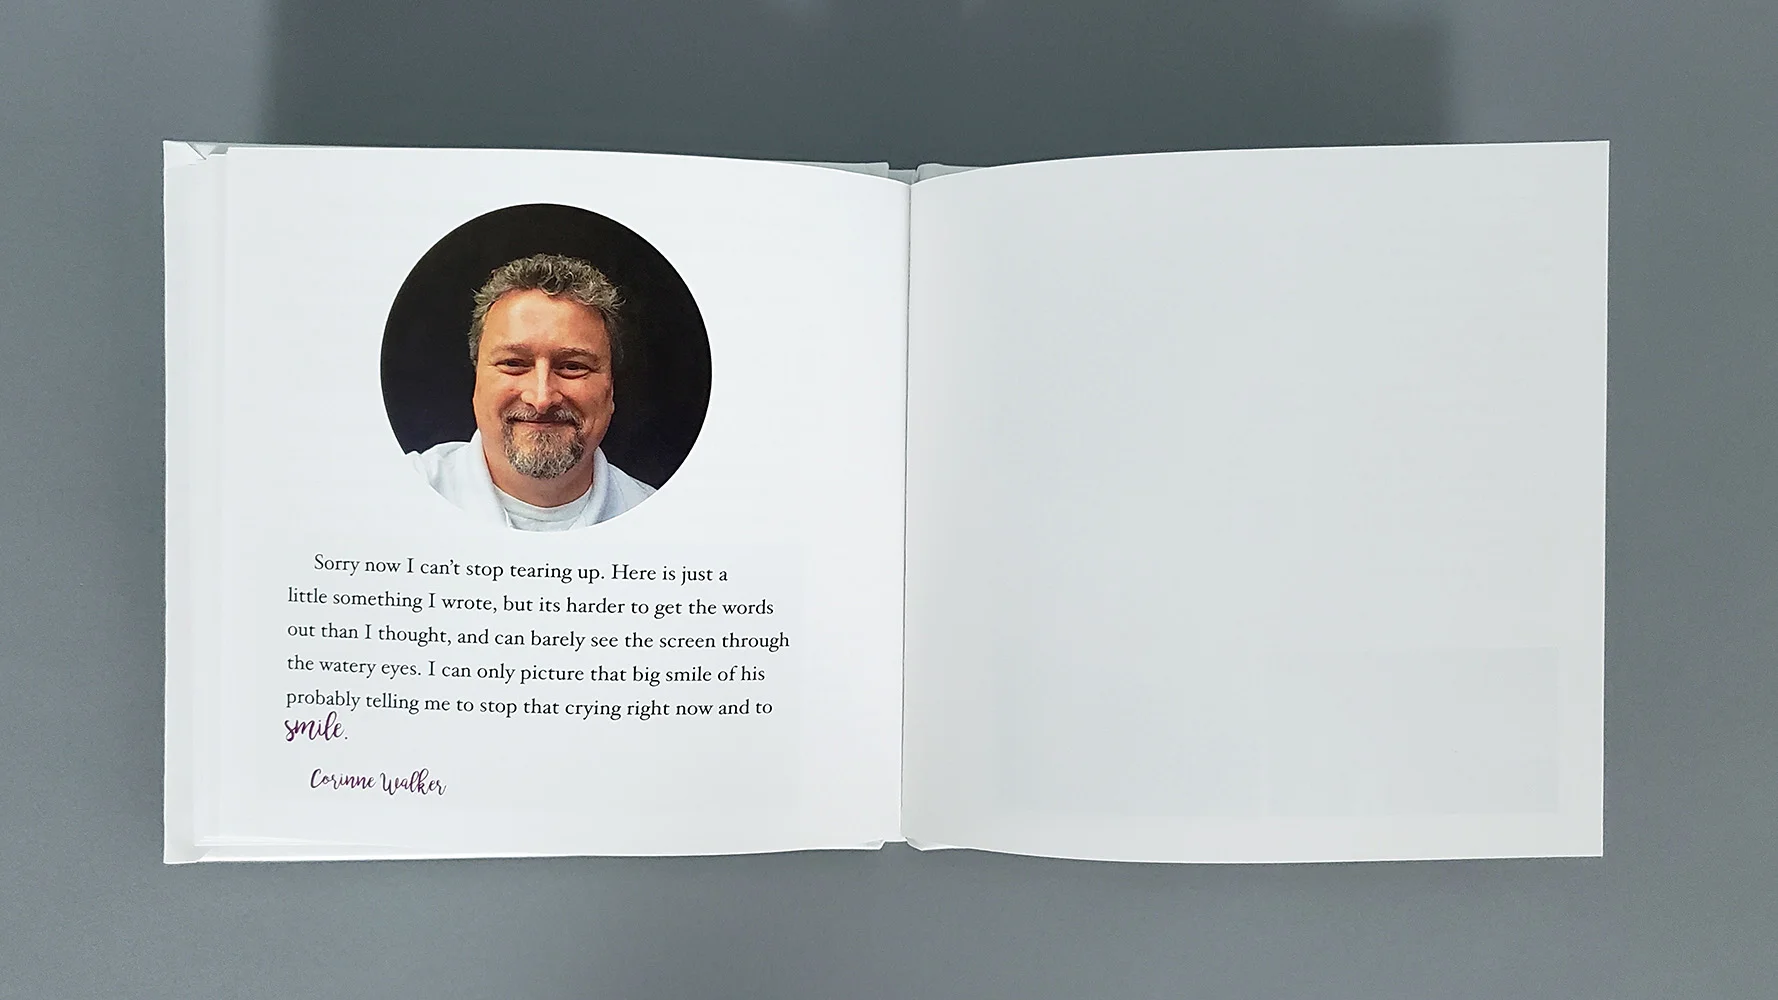 Sorry now I can’t stop tearing up. Here is just a
little something I wrote, but its harder to get the words
out than I thought, and can barely see the screen through
the watery eyes. I can only picture that big smile of his
probably telling me to stop that crying right now and to
smile.
Corinne Walker